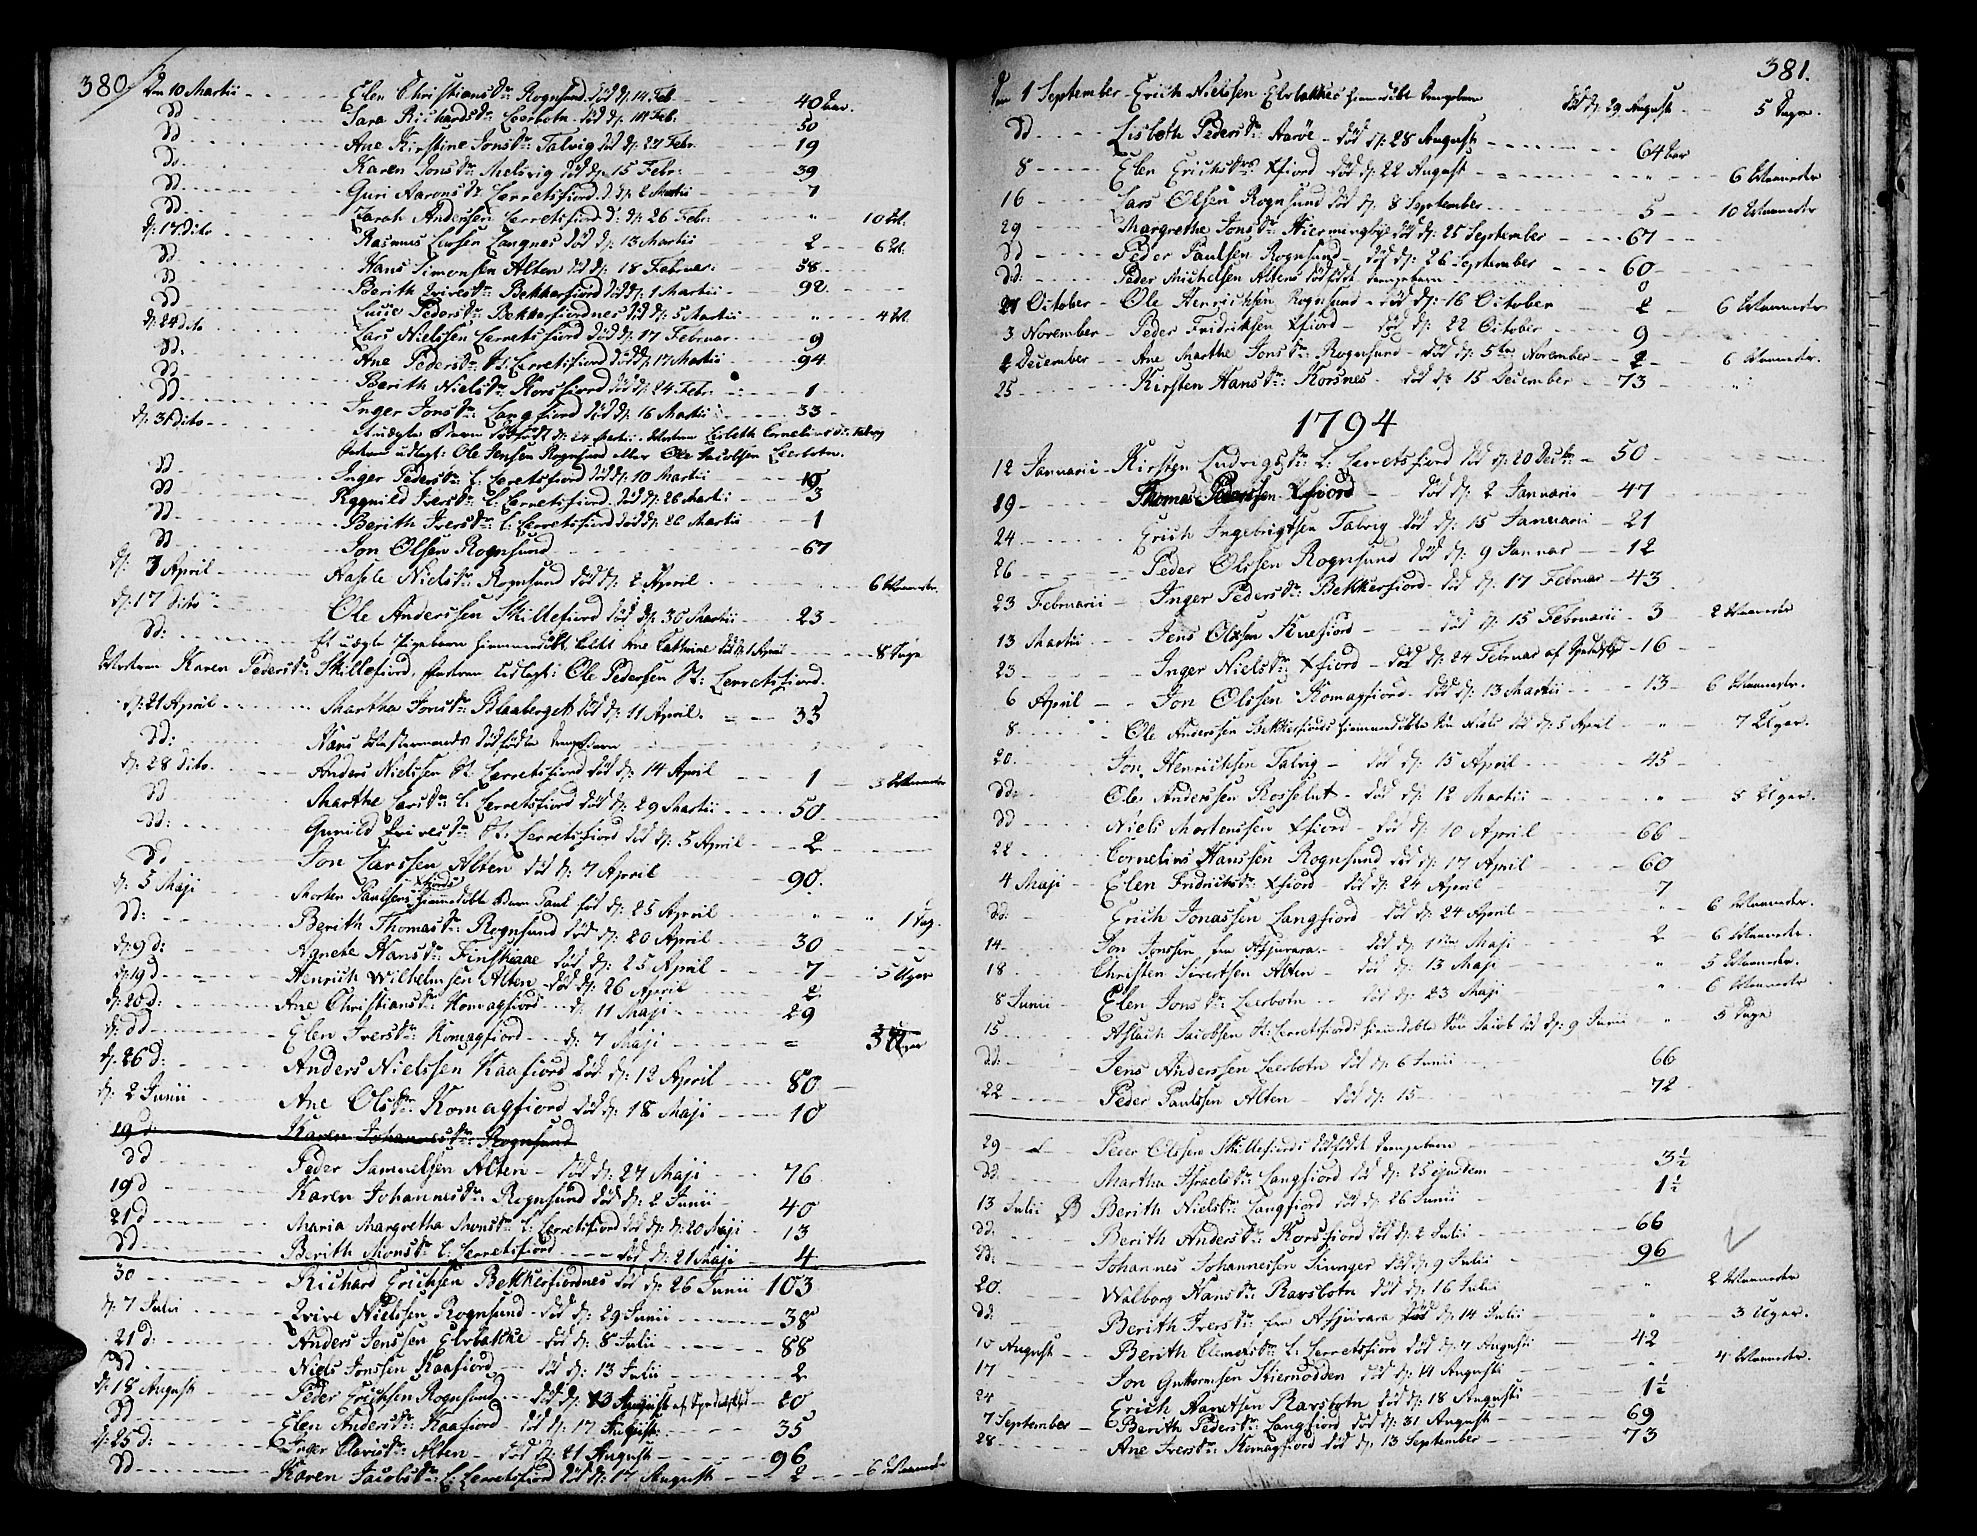 380
Den 10 Martii - Elen Christiansdr: Rognsund død d: 14 Feb. - 40 aar.
dd - Sara Richardsdr: Leerbotn død d: 14 Feb. - 50
dd - Ane Kirstine Jonsdr: Talvig død d: 27 Febr. - 19
do - Karen Jonsdr: Melsvig død d: 15 Febr: - 39
dd - Guri Aaronsdr: Lerretsfiord d: d: 2 Martii - 7
dd - Sarah Anderssen Lerretsfiord d: d: 26 Febr: - " - 10 M.
d: 17 dito - Rasmus Larsen Langnes død d: 13 Martii - 2 - 6 M.
dd - Hans Simonsen Alten død d: 18 Februar: - 58
dd - Berith Qvivesdr: Bekkerfiord død d: 1 Martii - 92
dd - Lucie Pedersdr: Bekkerfiordnes død d: 5 Martii - " - 4 M.
d: 24 dito - Lars Nielssen Lerretsfiord død d: 17 Februar - 9
dd: - Ane Pedersdr: St: Lerretsfiord død d: 17 Martii - 94
dd - Berith Nielsdr: Korsfiord død d: 24 Febr: - 1
dd - Inger Jonsdr: Langfiord død d: 16 Martii - 33
d: 31 dito - Et uægte Barn dødfødt d: 24 Martii. Moderen Lisbeth Cornelius dr: Talvig
Faderen udlagt: Ole Jensen Rognsund eller Ole Jacobsen Leerbotn.
dd - Inger Pedersdr: L: Lerretsfiord død d: 10 Martii - 10
dd - Ragnild Iversdr: L: Lerretsfiord. død d: 26 Martii - 3
dd - Berith Iversdr: L: Lerretsfiord død d: 26 Martii - 1
dd - Jon Olsen Rognsund - 67
d: 7 April - Aasele Nielsdr: Rognsund død d: 2 April - 6 Maaneder.
d: 17 dito - Ole Anderssen Skillefiord død d: 30 Martii - 23
dd: - Et uægte Pigebarn hiemmedøbt kaldt Ane Cathrine død d: 1 April - 8 Dage
Moderen Karen Pedersdr: Skillefiord, Faderen udlagt: Ole Pedersen St: Lerretsfiord.
d: 21 April - Martha Jonsdr: Blaaberget død d: 11 April. - 33
dd: - Hans Mastermands dødfødte Drengebarn
d: 28 dito. - Anders Nielssen St: Lerretsfiord død d: 14 April - 1 - 3 Maaneder
dd - Marthe Larsdr: L: Lerretsfiord død d: 29 Martii - 50
dd: - Gunild Qvivesdr: St: Lerretsfiord død d: 5 April - 2
dd - Jon Larssen Alten død d: 7 April - 90.
d: 5 Maji - Morten Paulsens Xfiords hiemmedøbte Barn Paul død d: 25 April - " - 1 Dag.
dd: - Berith Thomasdr: Rognsund død d: 20 April - 30
d: 9 d: - Agnete Hansdr: Finskaae død d: 25 April - 7
d: 19 d - Henrich Wilhelmsen Alten død d: 26 April - 2 - 5 Uger
d: 20 d: - Ane Christiansdr: Komagfiord d: 11 Maji - 29
d: dd: - Elen Iversdr: Komagfiord - d: 7 Maji - = - 3 Uger
d: 26 d: - Anders Nielssen Kaafiord død d: 12 April - 80
d: 2 Junii - Ane Olsdr: Komagfiord død d: 18 Maji - 10
19 d: - Karen Johannesdr: Rognsund
dd - Peder Samuelsen Alten - død d: 27 Maji - 76
19 d - Karen Johannesdr: Rognsund død d: 2 Junii - 40
21 d - Maria Margretha Monsdr: L: Lerretsfiord død d: d: 20 Maji - 13
dd - Berith Monsdr: L: Lerretsfiord - død d: 21 Maji - 4
30 - Richard Erichsen Bekkerfiordnes død d: 26 Junii - 103
d: 7 Julii - Qvive Nielssen Rognsund - død d: 29 Junii - 38
21 d: - Anders Jenssen Elvbakke - død d: 8 Julii - 88
dd - Niels Jonssen Kaafiord - død d: 13 Julii - 2
d: 18 August - Peder Erichsen Rognsund - død d: 13 August af Spedalskhed - 20
dd - Elen Andersdr: Kaafiord - død d: 17 August - 35
d: 25 d: - Inger Clavisdr: Alten - død d: 21 August - 96
dd - Karen Jacobsdr: L: Lerretsfiord død d: 17 August - 2 - 6 Maaneder
381.
Den 1 September - Erich Nielssen Elvbakkes hiemmedøbte Drengebarn død d: 29 August - 5 Dage.
dd - Lisbeth Pedersdr: Aarøe - død d: 28 August - 64 aar
8 - Elen Erichsdrs Xfiord død d: 22 August - " - 6 Maaneder
16 - Lars Olsen Rognsund død d: 8 September - 5 - 10 Maaneder
29 - Margrethe Jonsdr: Hiermingbye død d: 25 September - 67
dd - Peder Paulsen Rognsund - død d: 26 September - 60
dd: - Peder Michelsen Altens dødfødt Drengebarn - 0
21 October - Ole Henrichsen Rognsund - død d: 16 October - 2 - 6 Maaneder
3 November - Peder Fridrichsen Xfiord - død d: 22 October - 9
2 December - Ane Marthe Jonsdr: Rognsund - død d: 5te November - 2 - 6 Maaneder.
25 - Kirsten Hansdr: Korsnes - død d: 15 December - 73
1794
12 Januarii - Kirsten Ludvigsdr: L: Lerretsfiord død d: 20 Decbr - 50
19 - Thomas Pederssen Xfiord - død d: 2 Januarii - 47
24 - Erich Ingebrigtsen Talvig - død d: 15 Januarii - 21
26 - Peder Olssen Rognsund død d: 9 Januar - 12
23 Februarii - Inger Pedersdr: Bekkerfiord - død d: 17 Februar - 43
13 Martii - Jens Olssen Kuefiord - død d: 15 Februarii - 3 - 2 Maaneder
23 - Inger Nielsdr: Xfiord - død d: 24 Februar af Spedalskhed - 16
6 April - Jon Olssen Komagfiord - død d: 13 Martii - 13 - 6 Maaneder.
8 - Ole Anderssen Bekkerfiords hiemmedøbte Søn Niels død d: 5 April - " - 7 Uger.
20. - Jon Henrichsen Talvig - død d: 15 April - 45
dd: - Ole Anderssen Rosselut - død d: 12 Martii - " - 5 Uger.
dd - Niels Mortenssen Xfiord - død d: 10 April - 66
22 - Cornelius Hanssen Rognsund død d: 17 April - 60
4 Maji - Elen Fridrichsdr: Xfiord - død d: 24 April - 7
dd: - Erich Jonassen Langfiord - død d: 24 April - " - 6 Maaneder.
14 - Jon Jonssen fra Assjuvara - død d: 1ste Maji - 2 - 6 Maaneder.
18 - Christen Sivertsen Alten - død d: 13 Maji - " - 5 Maaneder.
8 Junii - Elen Jonsdr: Leerbotn - død d: 23 Maji - " - 6 Maaneder
15 - Aslach Jacobsen St: Lerretsfiords hiemdøbte Søn Jacob død d: 9 Junii - " - 5 Dage
dd: - Jens Anderssen Leerbotn død d: 6 Junii - 66
22 - Peder Paulssen Alten død d: 15 - 72
29 - Peder Olssen Skillefiords dødfødt Drengebarn
dd: - Martha Israelsdr: Langfiord død d: 25 ejusdem - 3½
13 Julii B Berith Nielsdr: Langfiord død d: 26 Junii - 1½
dd: - Berith Andersdr: Korsfiord død d: 2 Julii - 66
dd: - Johannes Johannessen død d: 9 Julii - 96
20. - Walborg Hansdr: Ravsbotn død d: 16 Julii - " - 2 Maaneder
dd: - Berith Iversdr: fra Assjuvara død d: 14 Julii - " - 3 Uger.
10 August - Berith Clemetsdr: L: Lerretsfiord død d: 7 Augusti - 42
17 - Jon Guttormsen Kiernødden død d: 11 Augusti - " - 4 Maaneder.
24 - Erich Hansen Ravsbotn død d: 18 Augusti - 1½
7 September - Berith Pedersdr: Langfiord død d: 31 August - 69
28 - Ane Iversdr: Komagfiord død d: 13 September - 73